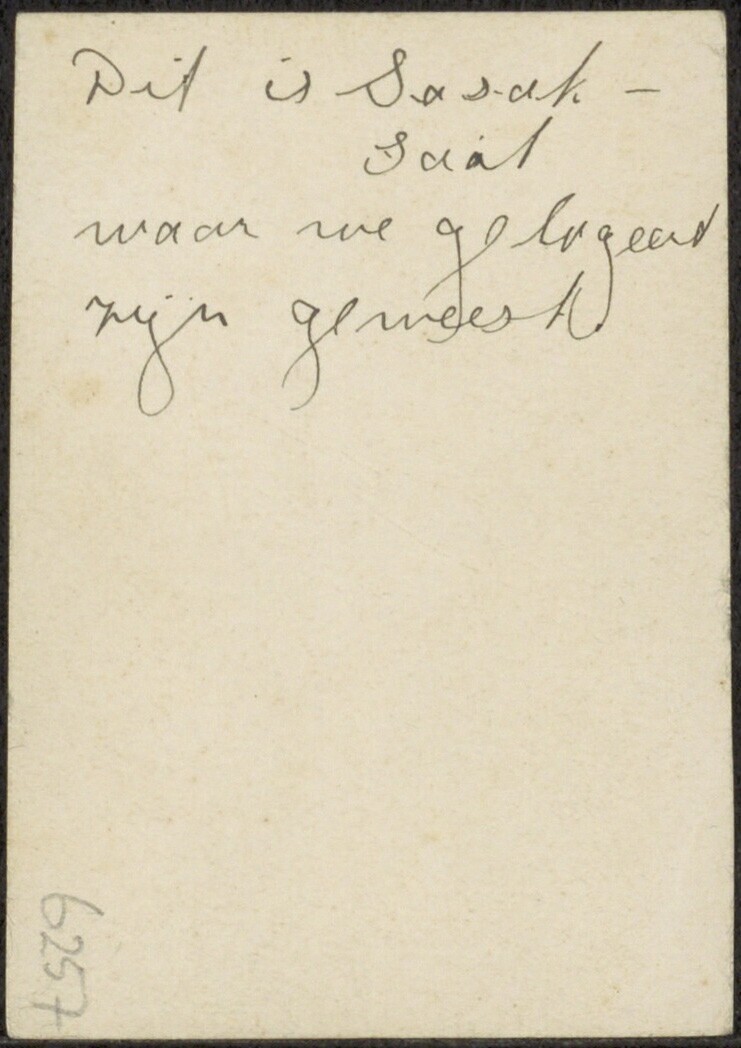 Dit is Sasak -
Saät
waar we gelogeerd
zijn geweest.
6257